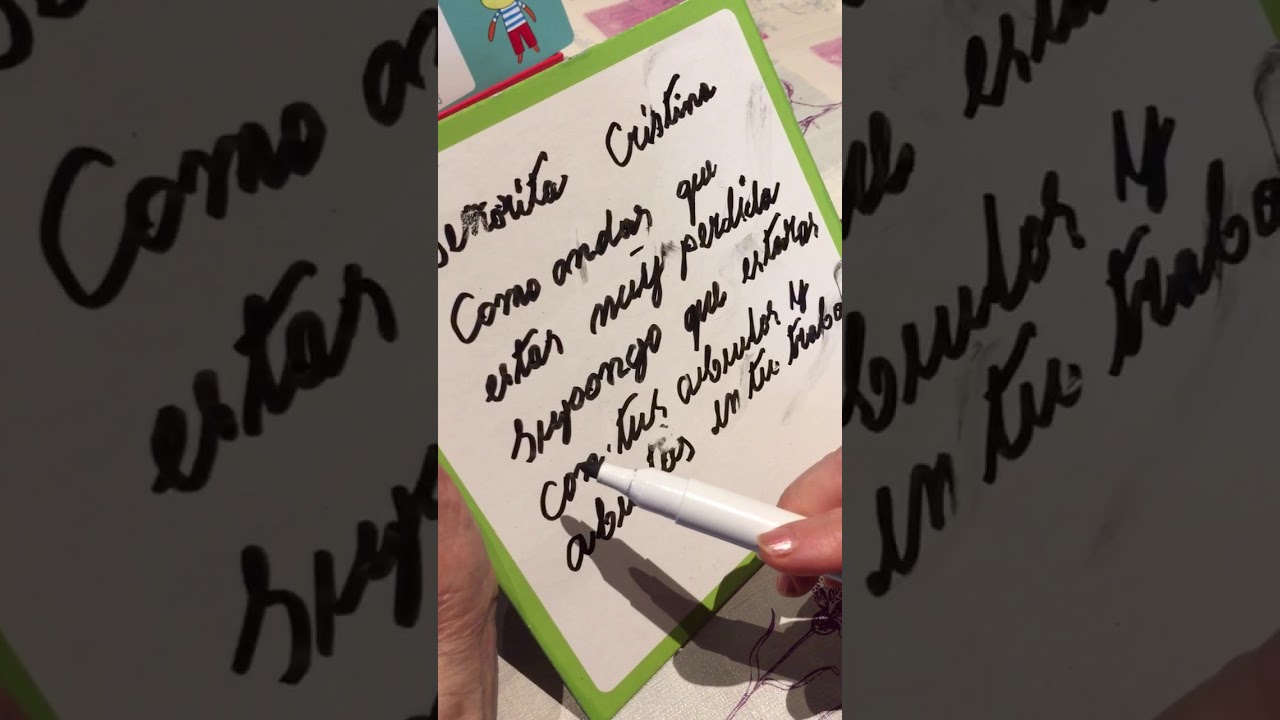 señorita Cristina
Como andas que
estas muy perdida
supongo que estaras
con tus y
en tu